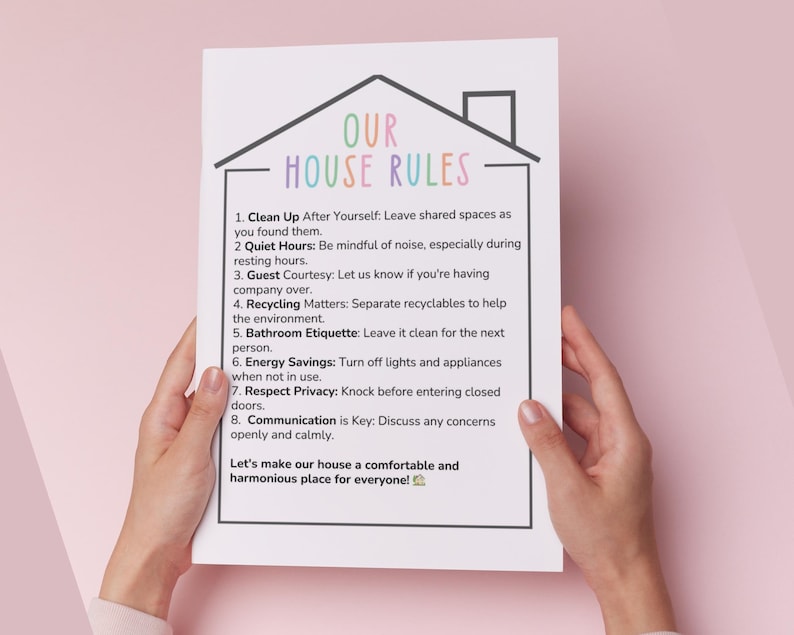 OUR
HOUSE RULES
1. Clean Up After Yourself: Leave shared spaces as
you found them.
2 Quiet Hours: Be mindful of noise, especially during
resting hours.
3. Guest Courtesy: Let us know if you're having
company over.
4. Recycling Matters: Separate recyclables to help
the environment.
5. Bathroom Etiquette: Leave it clean for the next
person.
6. Energy Savings: Turn off lights and appliances
when not in use.
7. Respect Privacy: Knock before entering closed
doors.
8. Communication is Key: Discuss any concerns
openly and calmly.
Let's make our house a comfortable and
harmonious place for everyone! 🏡